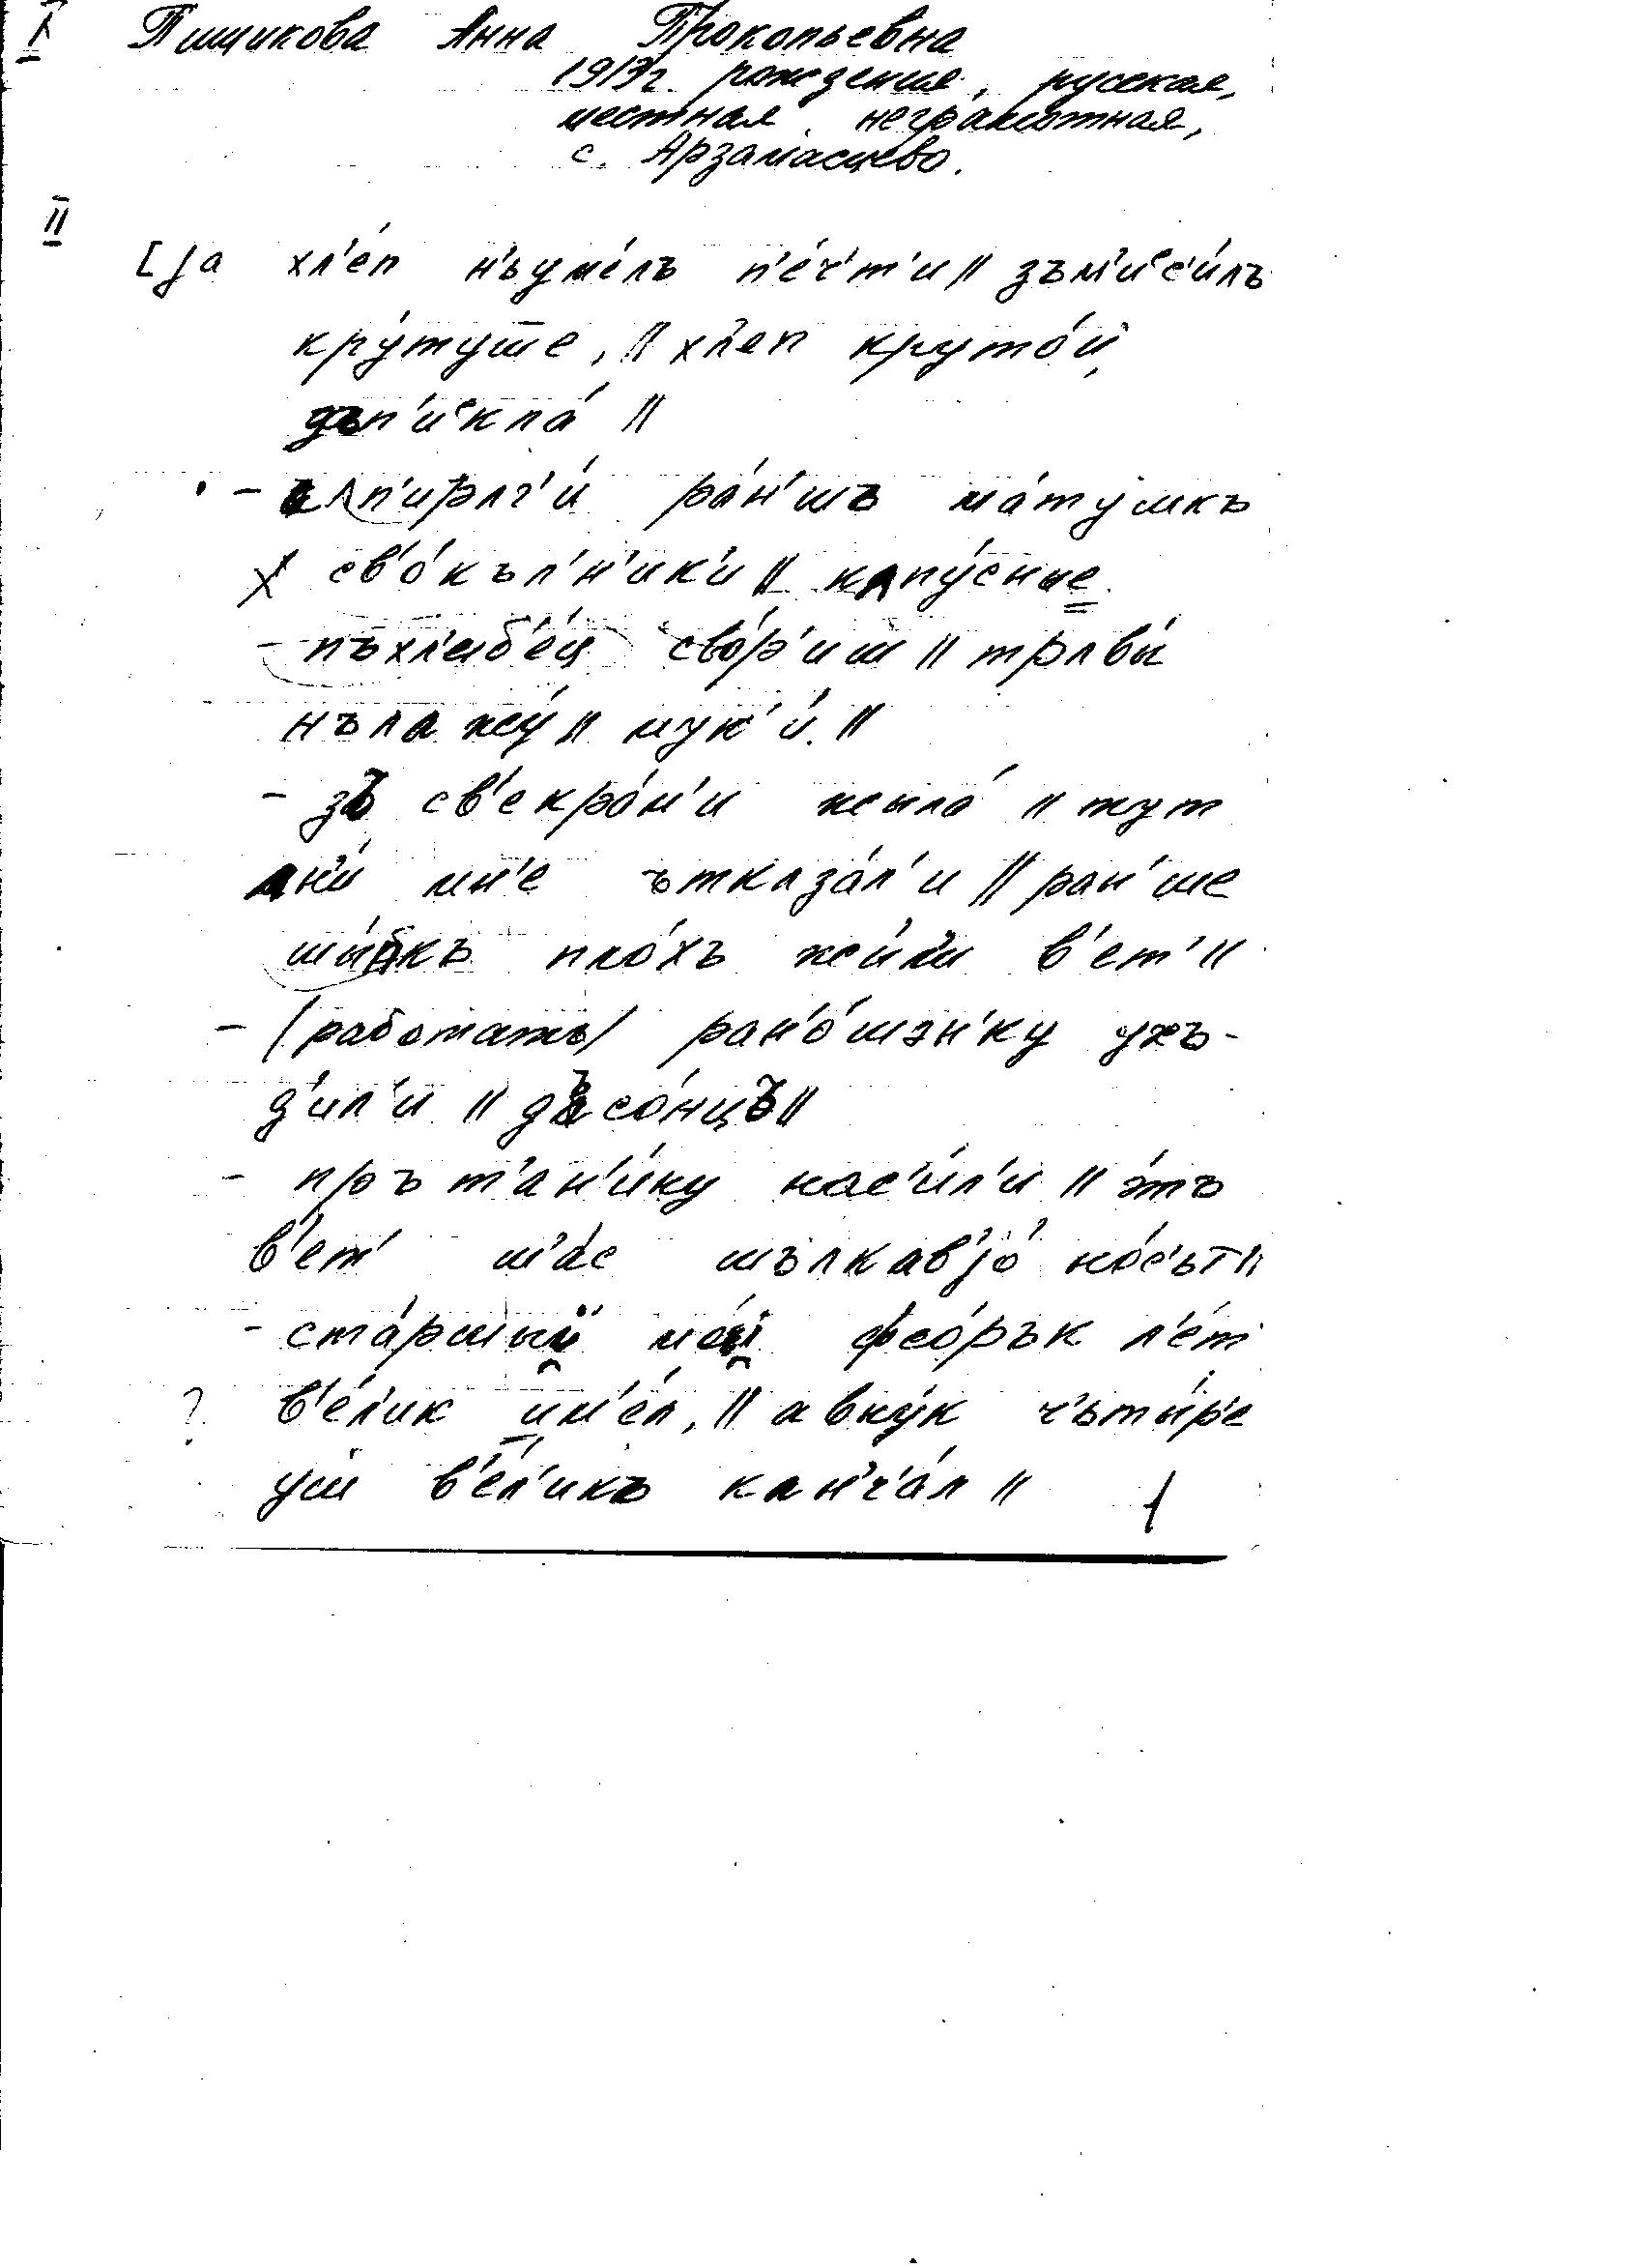 I Пищикова Анна Прокопьевна
1913г. рождения, русская,
местная, неграмотная,
с. Арзамасцево.
II
[ja хл'е́п н'ъуме́лъ п'е́ч'т'и // зъм'иᵉс'и́лъ
кру́туше, // хл'еп круто́й,
дъп'иᵉкла́ //
- ʌп'ирʌг'и́ ра́н'шъ ма́тушкъ
х св'о́къл'н'ик'и // кʌпу́сные
- пъхл'еб'е́ц сво́р'иш // трʌвы́
нълажу́ // мук'и́. //
- зъ св'екро́н'и жыла́ // тут
ʌн'и́ мн'е ътказа́л'и // ран'ше
шы́пкъ пло́хъ жы́ли в'ет' //
- (работать) ран'о́шэн'ку ухъ-
д'ил'и // дъсо́нцъ //
- пръ т'ан'и́ку нас'и́л'и // э́тъ
в'ет' ш'ас шълкав'jо́ но́с'ът //
- ста́ршый мо́й фео́рък л'ет
? в'е́лик им'е́л, // а вну́к ч'ьты́р'е
уш в'е́л'икъ канч'а́л // 1